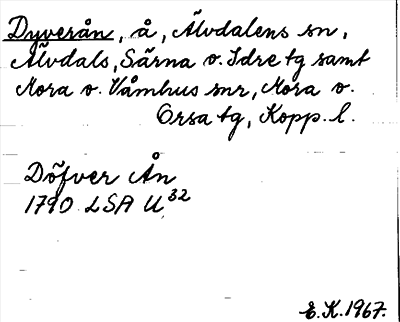 Dyverån, å, Älvdalens sn,
Älvdals, Särna o. Idre tg samt
Mora o. Våmhus snr, Mora o.
Orsa tg, Kopp. l.
Döfver Ån
1790 LSA U32
E.K.1967.